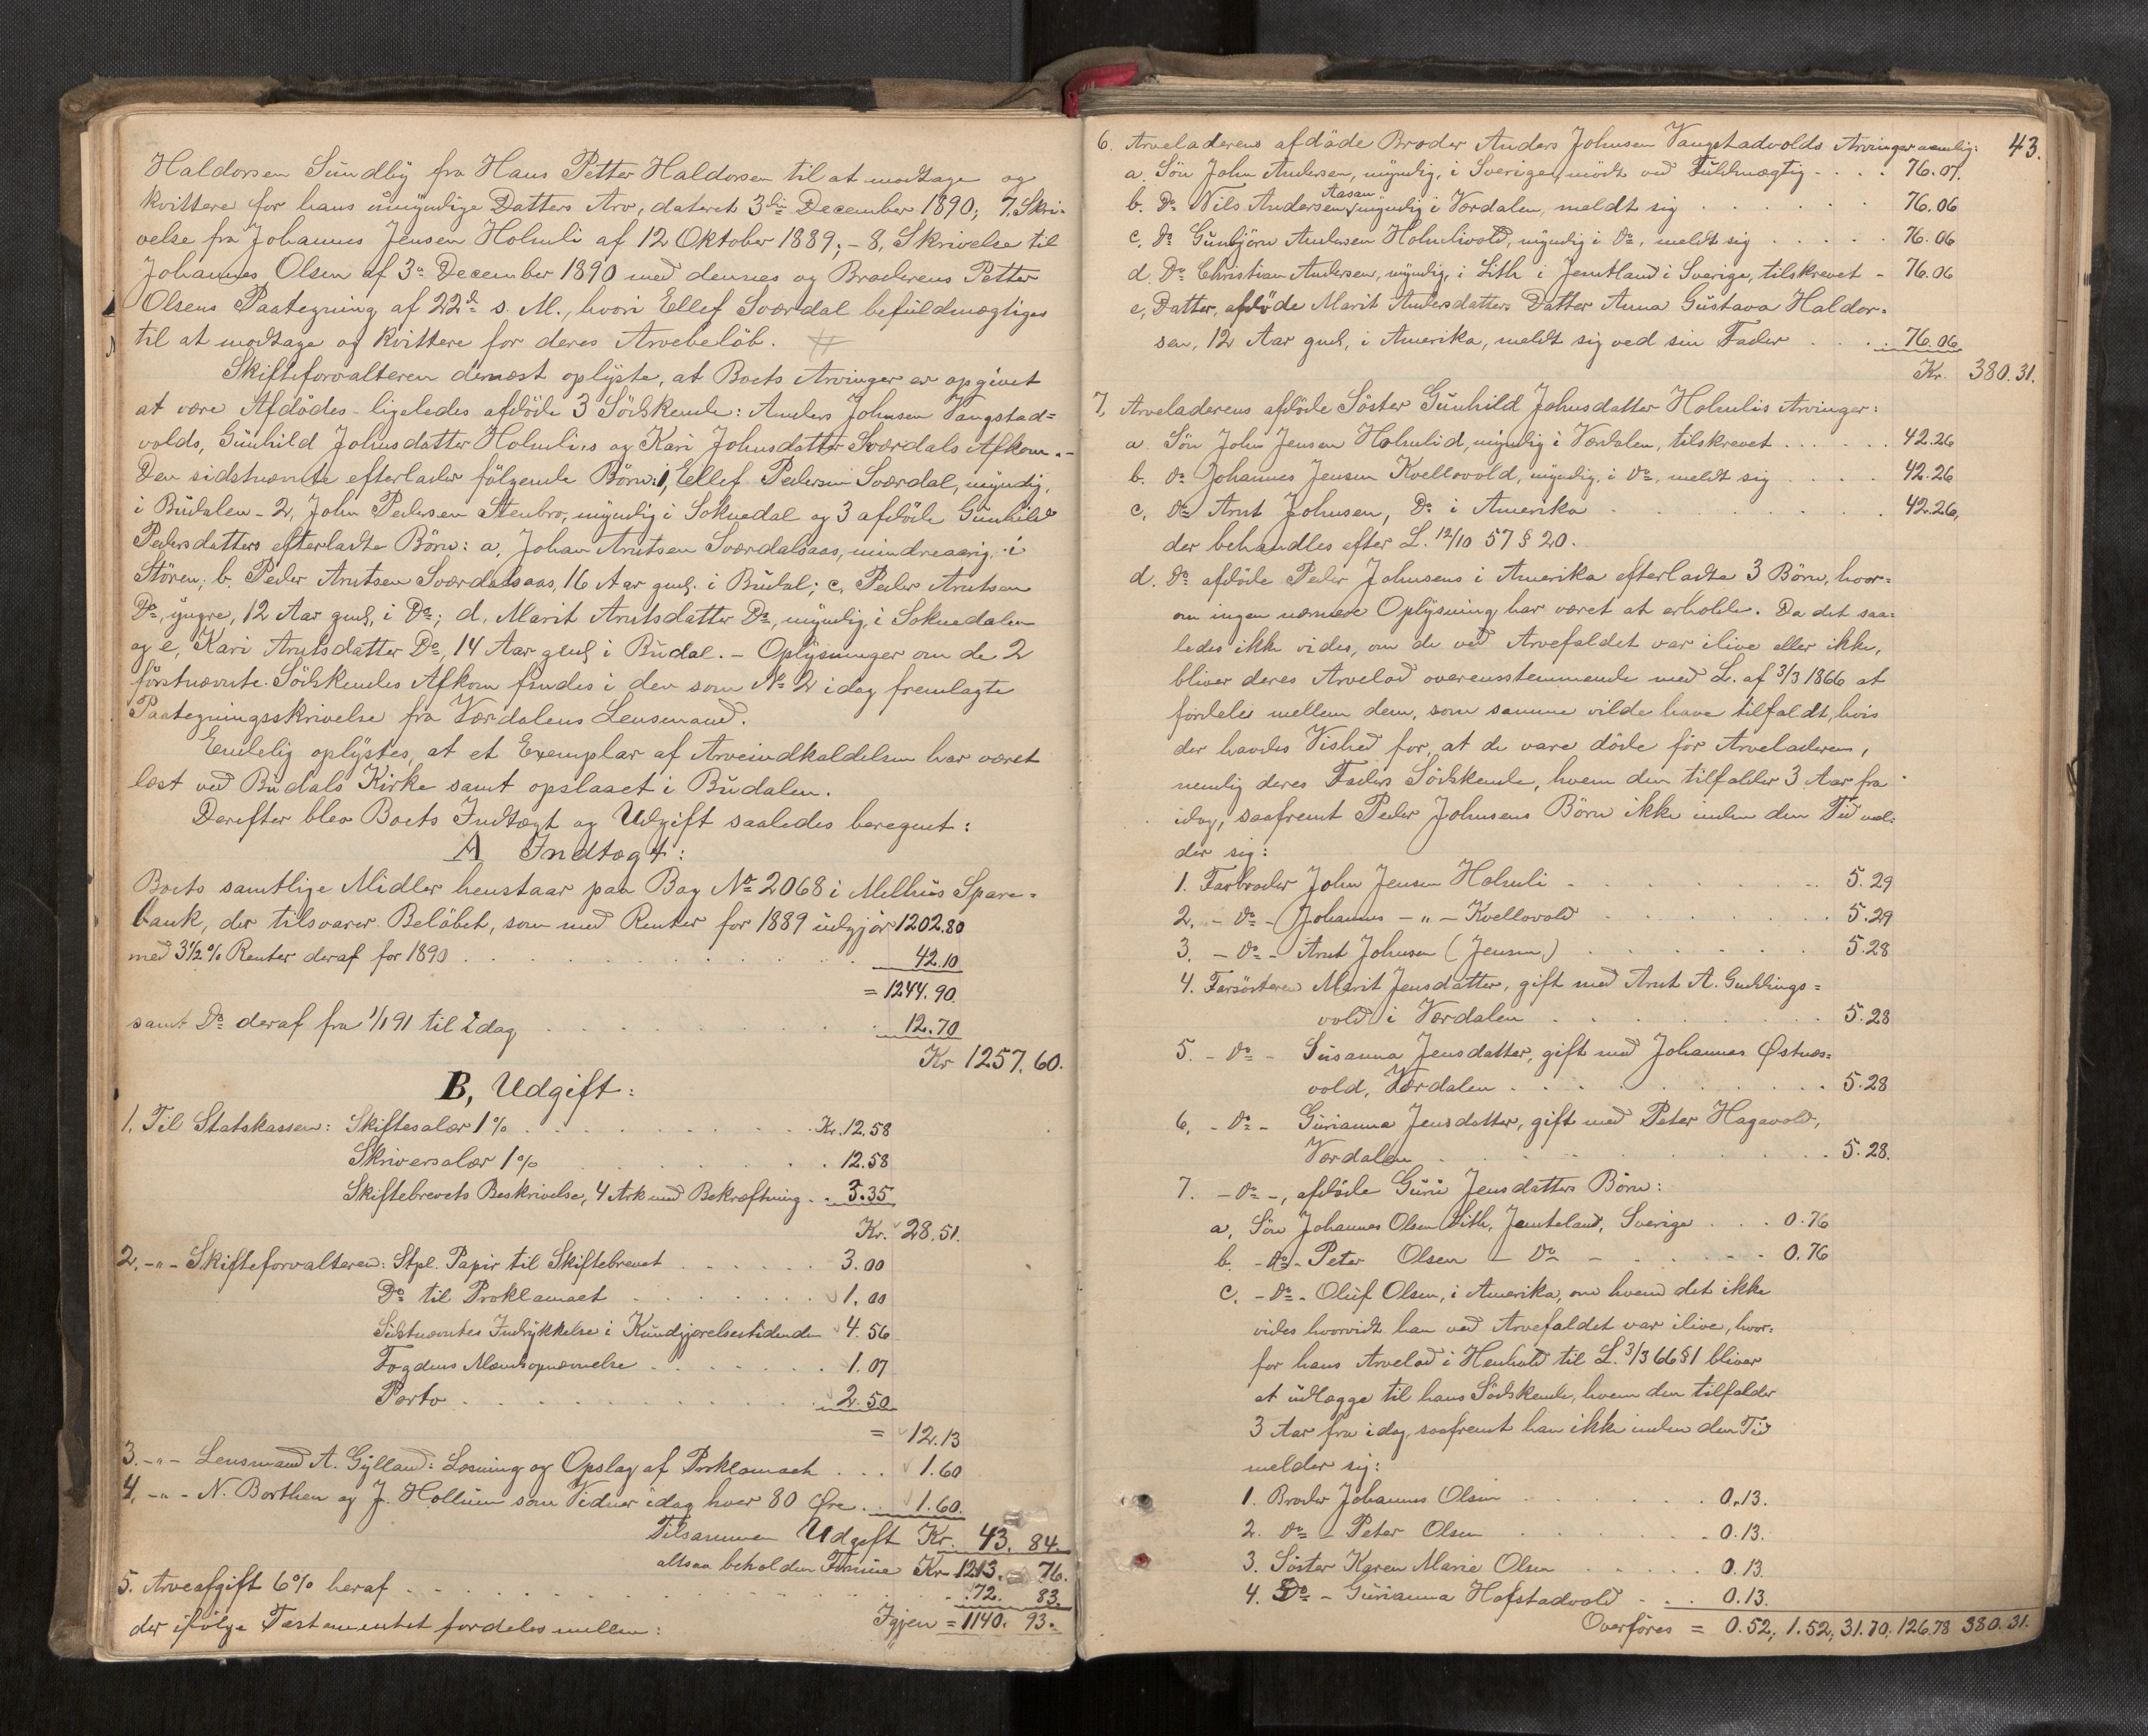 Haldorsen Sundby fra Hans Petter Haldorsen til at modtage og
kvittere for hans umyndige Datters Arv, dateret 3die December 1890; 7. Skri-
velse fra Johannes Jensen Holmli af 12 Oktober 1889; - 8, Skrivelse til
Johannes Olsen af 3= December 1890 med dennes og Broderens Petter
Olsens Paategning af 22d= s. M., hvori Ellef Sværdal befuldmægtiges
til at modtage og kvittere for deres Arvebeløb.
Skifteforvalteren dernæst oplyste, at Boets Arvinger er opgivet
at være Afdødes ligeledes afdøde 3 Södskende: Anders Johnsen Vangstad=
volds, Gunhild Johnsdatter Holmlis og Kari Johnsdatter Sværdals Afkom. -
Den sidstnævnte efterlader følgende Børn: 1, Ellef Pedersen Sværdal, myndig,
i Budalen - 2, John Pedersen Stenbro, myndig i Soknedal og 3 afdöde Gunhild
Pedersdatters efterladte Børn: a, Johan Arntsen Sværdalsaas, mindreaarig, i
Stören; b. Peder Arntsen Sværdalsaas, 16 Aar gml. i Budal; c, Peder Arntsen
Do, yngre, 12 Aar gml, i Do; d, Marit Arntsdatter Do, myndig, i Soknedalen
og e, Kari Arntsdatter Do, 14 Aar gml i Budal. - Oplysninger om de 2
förstnævnte Södskendes Afkom findes i den som No 2 idag fremlagte
Paategningsskrivelse fra Værdalens Lensmand.
Endelig oplystes, at et Exemplar af Arveindkaldelsen har været
læst ved Budals Kirke samt opslaaet i Budalen.
Derefter blev Boets Indtægt og Udgift saaledes beregnet:
A Indtægt:
Boets samtlige Midler henstaar paa Bog No 2068 i Melhus Spare-
bank, der tilsvarer Beløbet, som med Renter for 1889 udgjør 1202.80
med 3 1/2 % Renter deraf for 1890 . . . 42.10
= 1244.90
samt Do deraf fra 1/1 91 til Idag . . . 12.70
Kr 1257.60.
B, Udgift:
1. Til Statskassen: Skiftesalær 1 % . . . Kr. 12.58
Skriversalær 1 % . . . 12.58
Skiftebrevets Beskrivelse, 4 Ark med Bekræftning . . 3.35
Kr. 28.51.
2. -"- Skifteforvalteren: Stpl. Papir til Skiftebrevet . . . 3.00
Do til Proklamaet . . . 1.00
Sidstnævntes Indrykkelse i Kundgjørelsestidenden 4.56
Fogdens Mændsopnævnelse . . . 1.07
Porto . . . 2.50
= 12.13
3. -"- Lensmand A. Gylland: Læsning og Opslag af Proklamaet . . . 1.60
4, -"- N. Borthen og J. Hollum som Vidner idag hver 80 Øre . . 1.60.
Tilsammen Udgift Kr. 43. 84.
altsaa beholden Formue Kr 1213. 76.
5. Arveafgift 6% heraf . . . 72. 83.
Igjen = 1140. 93.
der ifølge Testamentet fordeles mellem:
43.
6. Arveladerens afdöde Broder Anders Johnsen Vangstadvolds Arvinger nemlig:
a. Sön John Andersen, myndig, i Sverige, mødt ved Fuldmægtig . . . 76.07.
b. Do Nils Andersen Aasan, myndig i Værdalen, meldt sig . . . 76.06
c, Do Gunbjörn Andersen Holmlivold, myndig i Do, meldt sig . . . 76.06
d. Do Christian Andersen, myndig, i Lith i Jemtland i Sverige, tilskrevet - 76.06
e, Datter, afdöde Marit Andersdatters Datter Anna Gustava Haldor-
sen, 12 Aar gml, i Amerika, meldt sig ved sin Fader . . . 76.06
Kr. 380.31.
7, Arveladerens afdöde Söster Gunhild Johnsdatter Holmlis Arvinger:
a. Sön John Jensen Holmlid, myndig i Værdalen, tilskrevet . . . 42.26
b. Do Johannes Jensen Kvellovold, myndig, i Do, meldt sig . . . 42.26
c, Do Arnt Johnsen, Do i Amerika . . . 42.26,
der behandles efter L. 12/10 57 § 20.
d. Do afdöde Peder Johnsens i Amerika efterladte 3 Börn, hvor-
om ingen nærmere Oplysning har været at erholde. Da det saa-
ledes ikke vides, om de ved Arvefaldet var ilive eller ikke,
bliver deres Arvelod overensstemmende med L. af 3/3 1866 at
fordele mellem dem, som samme vilde have tilfaldt, hvis
der havdes Vished for, at de vare döde för Arveladeren,
nemlig deres Faders Södskende, hvem den tilfalder 3 Aar fra
idag, saafremt Peder Johnsens Börn ikke inden den Tid mel-
der sig:
1. Farbroder John Jensen Holmli . . . 5.29
2. - Do - Johannes - " - Kvellovold . . . 5.29
3. - Do - Arnt Johnsen (Jensen) . . . 5.28
4. Farsösteren Marit Jensdatter, gift med Arnt A. Guddings=
vold i Værdalen . . . 5.28
5. - Do - Susanna Jensdatter, gift med Johannes Østnæs=
vold, Værdalen . . . 5.28
6, - Do - Gurianna Jensdatter, gift med Peter Hagavold,
Værdalen . . . 5.28.
7. - Do -, afdöde Guru Jensdatters Börn:
a, Sön Johannes Olsen Lith, Jemteland, Sverige . . . 0.76
b. - Do - Peter Olsen - Do - . . . 0.76
c, - Do - Oluf Olsen, i Amerika, om hvem det ikke
vides hvorvidt han ved Arvefaldet var ilive, hvor-
for hans Arvelod i Henhold til L. 3/3 66 § 1 bliver
at udlægge til hans Södskende, hvem den tilfalder
3 Aar fra idag, saafremt han ikke inden den Tid
melder sig:
1. Broder Johannes Olsen . . . 0.13.
2. Do - Peter Olsen . . . 0.13.
3. Söster Karen Marie Olsen . . . 0.13.
4. Do - Gurianna Hofstadvold . . . 0.13.
Overføres = 0.52; 1.52; 31.70; 126.78 380.31.